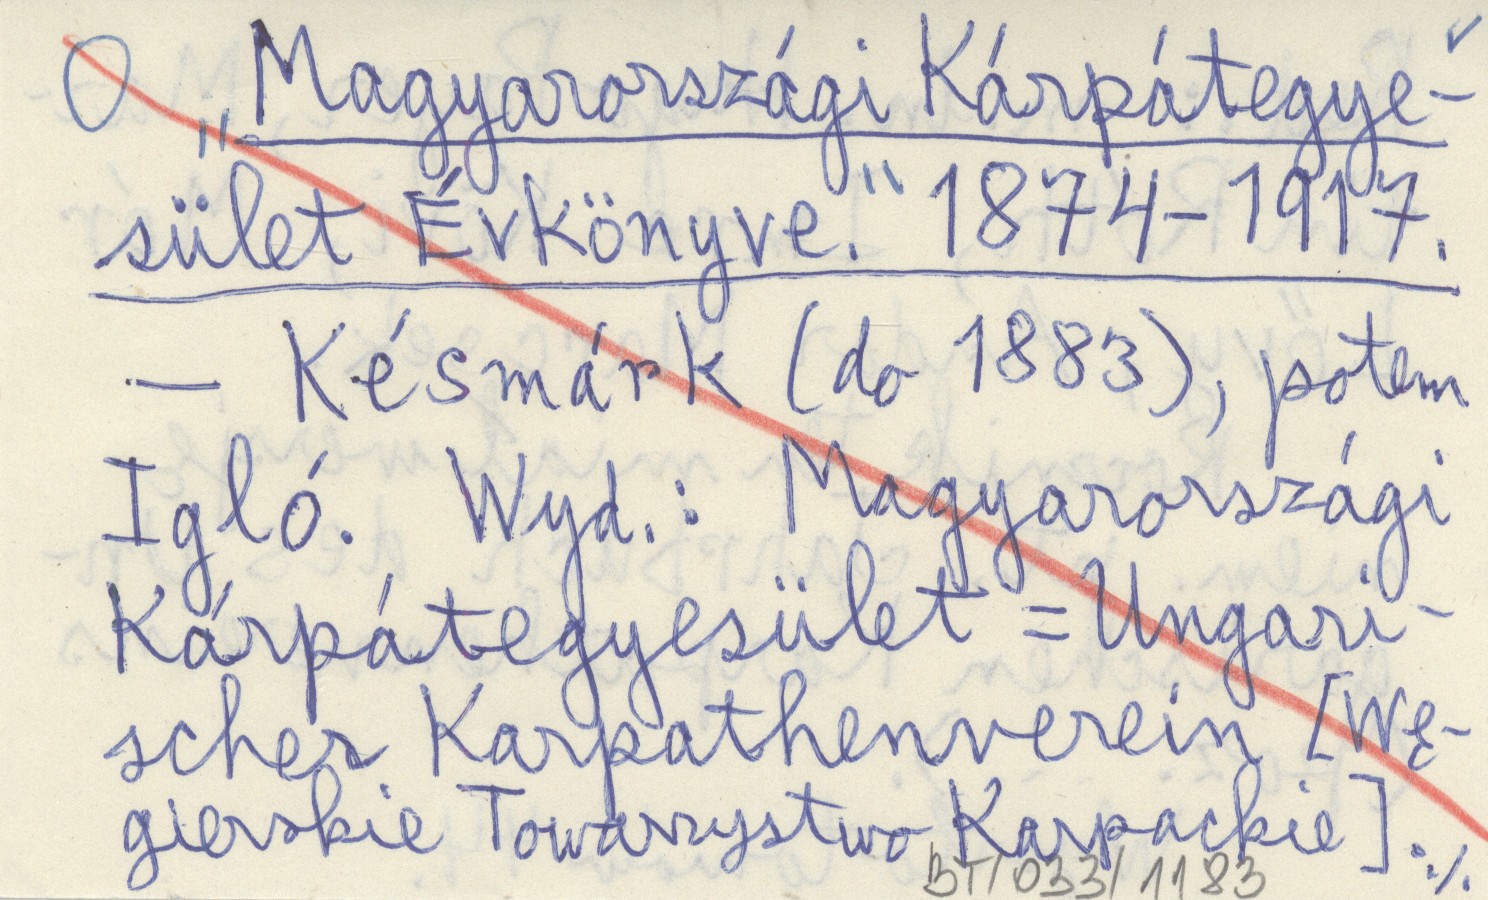 O „Magyarországi Kárpátegye-
sület Évkönyve." 1874-1917.
— Késmárk (do 1883), potem
Igló. Wyd.: Magyarországi
Kárpátegyesület = Ungari-
scher Karpathenverein [Wę-
gierskie Towarzystwo Karpackie]. ./.
BT/033/1183